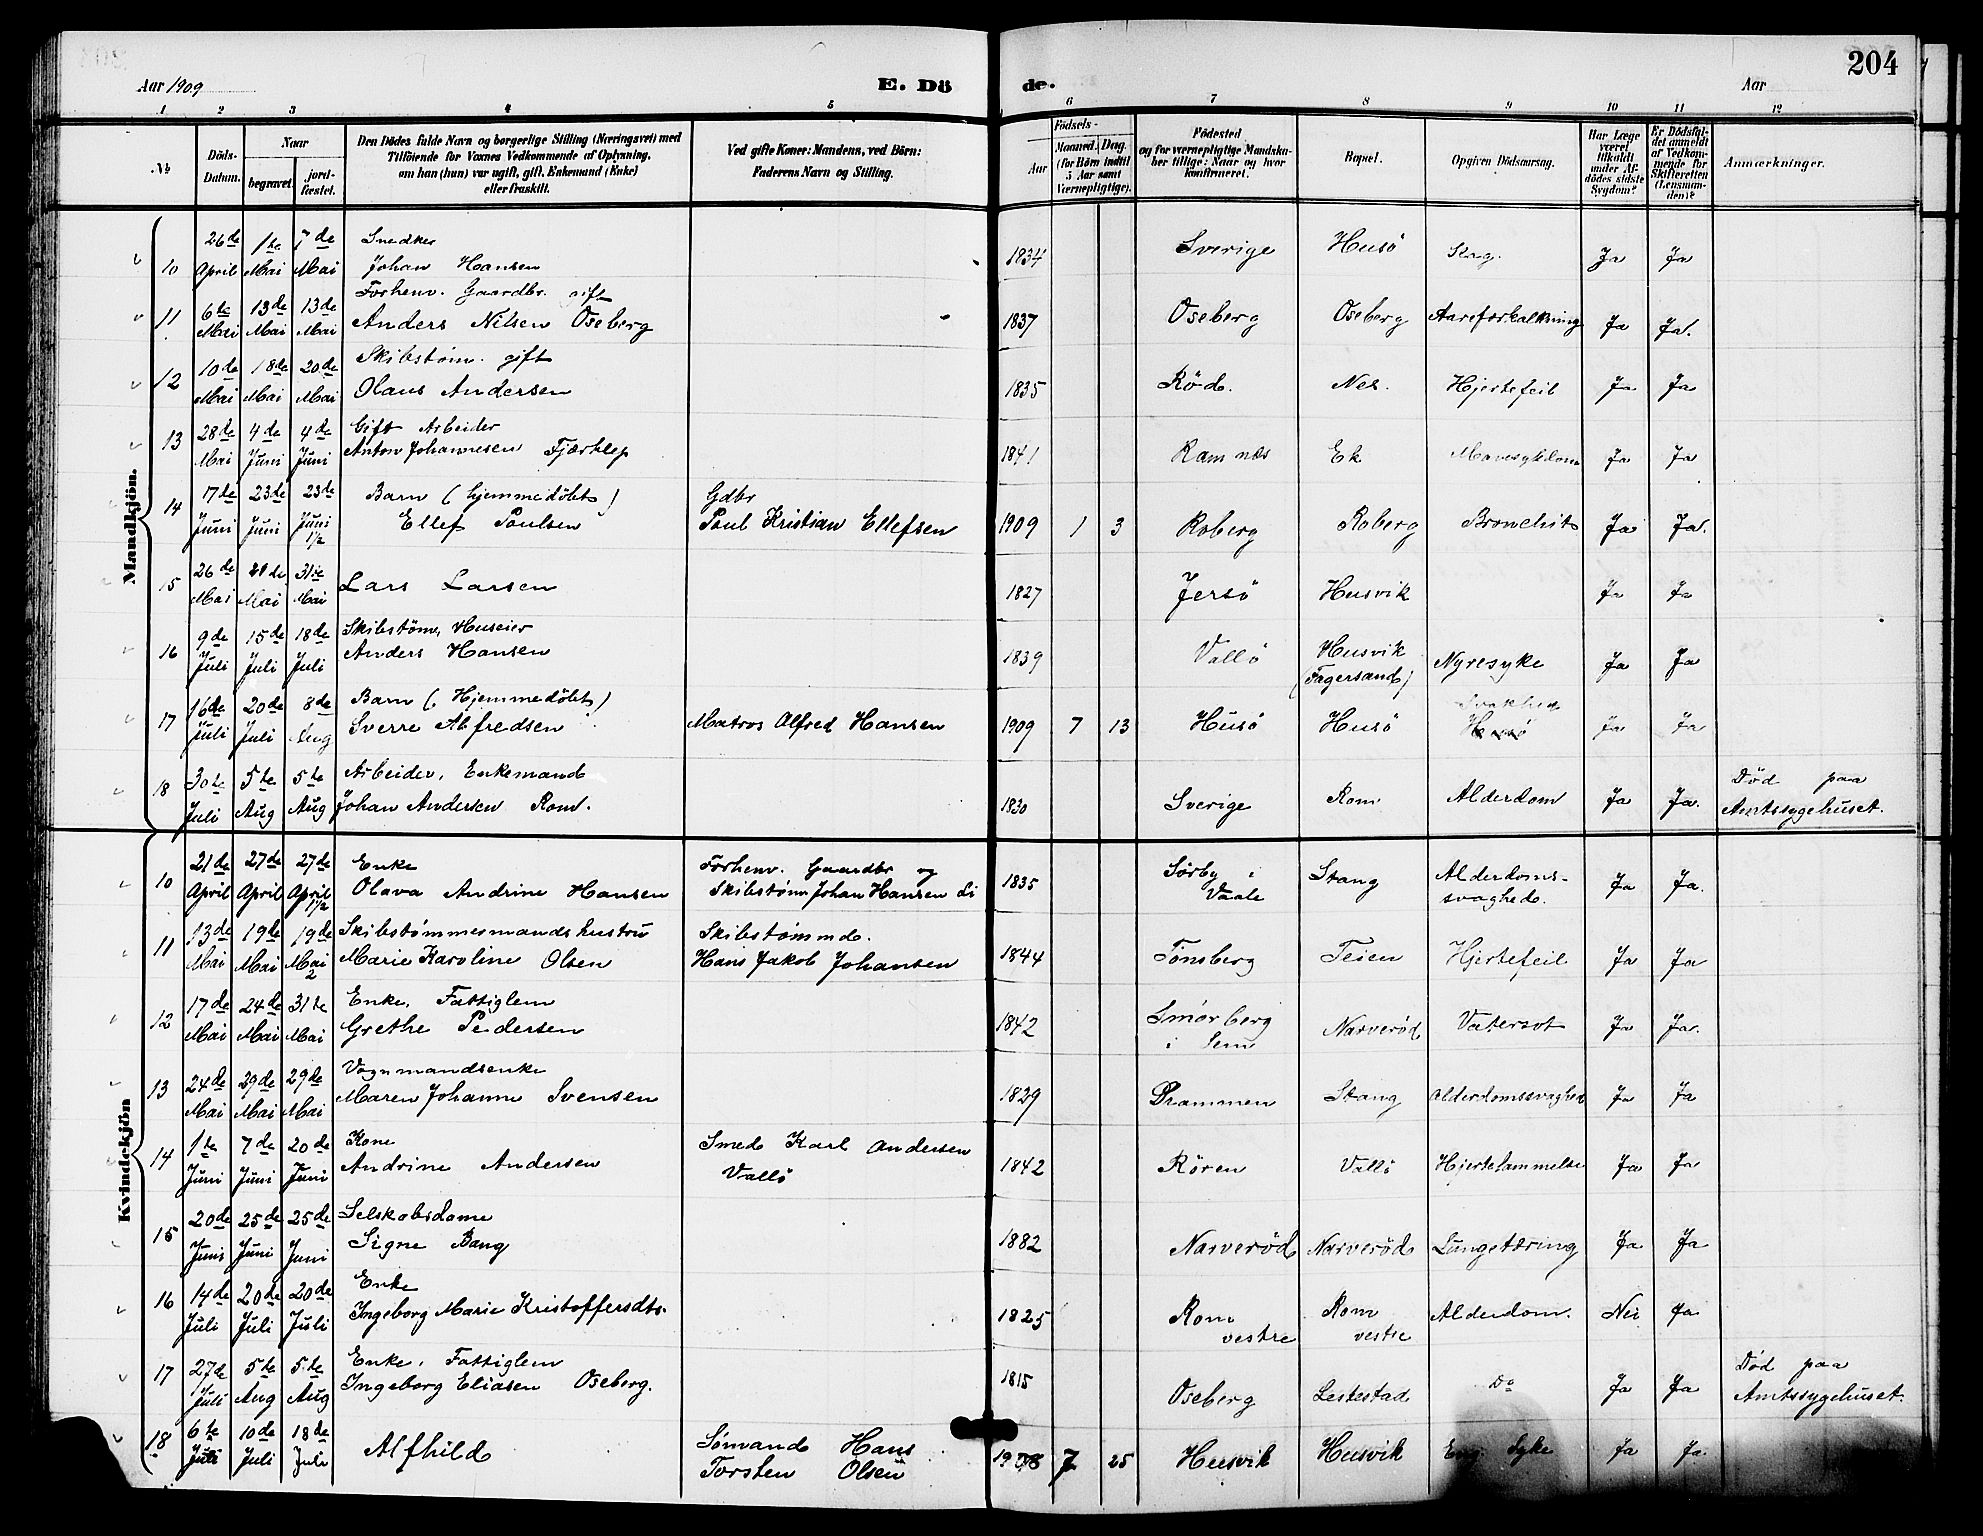 204
Aar 1909
E. Dö
de.
Aar
1 2 3 4 5 6 7 8 9 10 11 12
No
Döds-Datum.
Naar
begravet.
jord-fæstet.
Den Dödes fulde Navn og borgerlige Stilling (Næringsvei) med
Tilföiende for Voxnes Vedkommende af Oplysning,
om han (hun) var ugift, gift, Enkemand (Enke)
eller fraskilt.
Ved gifte Koner: Mandens, ved Börn:
Faderens Navn og Stilling.
Födsels-
Aar
Maaned. Dag.
(for Börn indtil
5 Aar samt
Værnepligtige).
Födested
og for værnepligtige Mandska-
ber tillige: Naar og hvor
konfirmeret.
Bopæl.
Opgiven Dödsaarsag.
Har Læge
været
tilkaldt
under Af-
dödes sidste
Sygdom?
Er Dödsfal-
det anmeldt
af Vedkom-
mende for
Skifteretten
(Lensman-
den)?
Anmærkninger.
Mandkjön.
10 26de April 1te Mai 7de Mai Snedker Johan Hansen 1834 Sverige Husö Slag. Ja Ja
11 6te Mai 13de Mai 13de Mai Forhenv. Gaardbr. gift Anders Nilsen Oseberg 1837 Oseberg Oseberg Aareforkalkning Ja Ja.
12 10de Mai 18de Mai 20de Mai Skibstøm. gift Olaus Andersen 1835 Röd. Nes. Hjertefeil Ja Ja
13 28de Mai 4de Juni 4de Juni Gift Arbeider Anton Johannesen Fjærklep 1841 Ramnæs Ek Mavesykdom Ja Ja
14 17de Juni 23de Juni 23de Juni 1/2 Barn (hjemmedöbt) Ellef Paulsen Gdbr Paul Kristian Ellefsen 1909 1 3 Roberg Roberg Bronchit Ja Ja.
15 26de Mai Mai 31te Mai Lars Larsen 1827 Jersö Husvik Ja Ja
16 9de Juli 15de Juli 18de Juli Skibstøm, Huseier Anders Hansen 1839 Vallö Husvik (Fagersand) Nyresyke Ja Ja
17 16de Juli 20de Juli 8de Aug Barn (Hjemmedöbt) Sverre Alfredsen Matros Alfred Hansen 1909 7 13 Husö Husö Svakhed Husö Ja Ja
18 30te Juli 5te Aug 5te Aug Arbeider, Enkemand Johan Andersen Rom. 1830 Sverige Rom Alderdom Ja Ja. Död paa Amtssygehuset.
Kvindekjön
10 21de April 27de April 27de April 1/2 Enke Olava Andrine Hansen Forhenv. Gaardbr og Skibstøm Johan Hansen Li 1835 Sörby i Vaale Stang Alderdoms-svaghed. Ja Ja.
11 13de Mai 19de Mai 19de Mai 2 Skibstømmesmandshustru Marie Karoline Olsen Skibstømmd. Hans Jakob Johansen 1844 Tönsberg Teien Hjertefeil Ja Ja
12 17de Mai 24de Mai 31te Mai Enke, Fattiglem Grethe Pedersen 1842 Smörberg i Sem Narveröd Vatersot Ja Ja.
13 24de Mai 29de Mai 29de Mai Vognmandsenke Maren Johanne Svensen 1829 Drammen Stang Alderdomssvaghed Ja Ja
14 1te Juni 7de Juni 20de Juni Kone Andrine Andersen Smed Karl Andersen Vallö 1842 Rören Vallö Hjertelammelse Ja Ja
15 20de Juni 25de Juni 25de Juni Selskabsdame Signe Bang 1882 Narveröd Narveröd Lungetæring Ja Ja
16 14de Juli 20de Juli 20de Juli Enke Ingeborg Marie Kristoffersdts. 1825 Rom vestre Rom vestre Alderdom. Nei Ja.
17 27de Juli 5te Aug 5te Aug Enke, Fattiglem Ingeborg Eliasen Oseberg. 1815 Oseberg Lestestad Do Ja Ja Död paa Amtssygehuset.
18 6te Juli 10de Juli 18de Juli Alfhild Sömand Hans Torsten Olsen 1908 7 25 Husvik Husvik Eng. Syke Ja Ja.